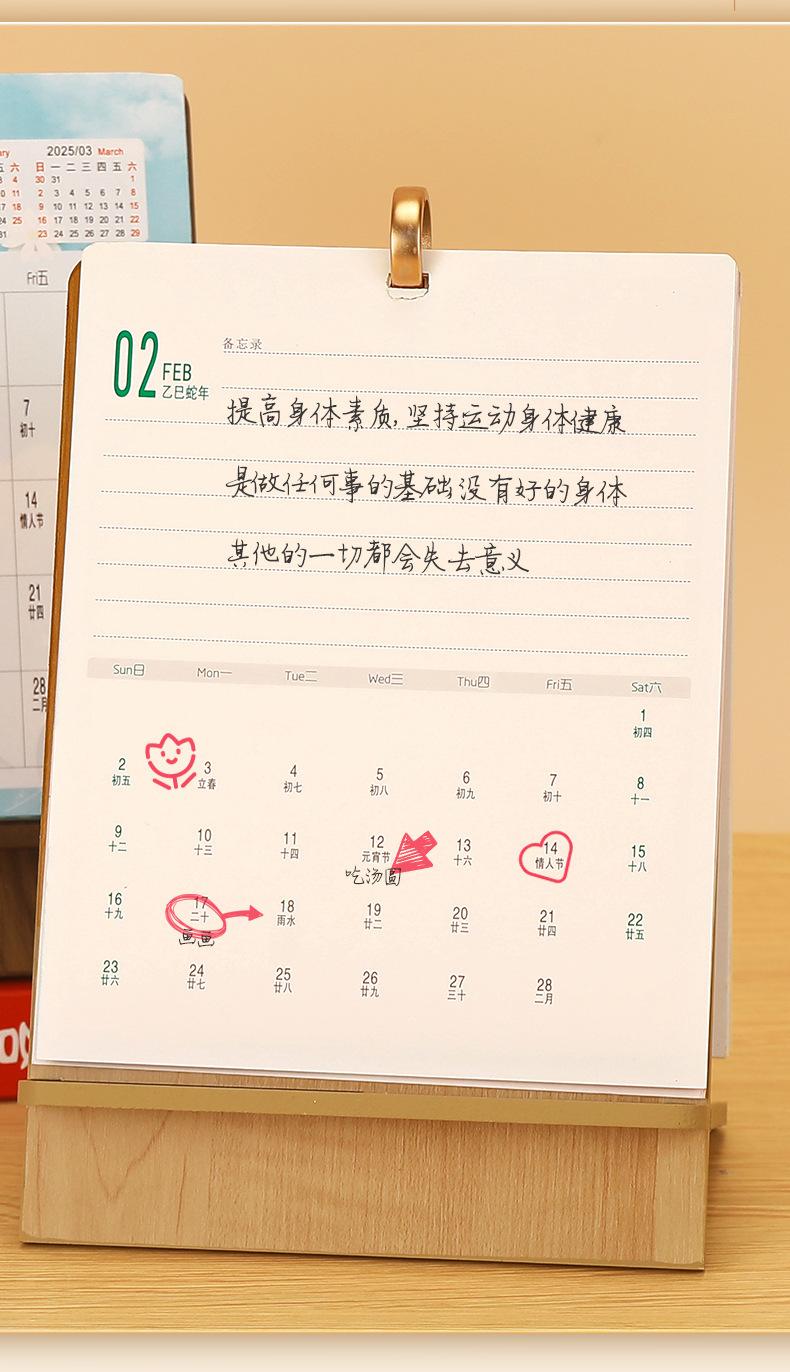 2025/03 March
日 一 二 三 四 五 六
30 31 1
2 3 4 5 6 7 8
9 10 11 12 13 14 15
16 17 18 19 20 21 22
23 24 25 26 27 28 29
Fri五
7
初十
14
情人节
21
廿四
28
02 FEB
乙巳蛇年
备忘录
提高身体素质,坚持运动身体健康
是做任何事的基础没有好的身体
其他的一切都会失去意义
Sun日 Mon一 Tue二 Wed三 Thu四 Fri五 Sat六
1
初四
2 3 4 5 6 7 8
初五 立春 初七 初八 初九 初十 十一
9 10 11 12 13 14 15
十二 十三 十四 元宵节 十六 情人节 十八
吃汤圆
16 17 18 19 20 21 22
十九 二十 雨水 廿二 廿三 廿四 廿五
画画
23 24 25 26 27 28
廿六 廿七 廿八 廿九 三十 二月